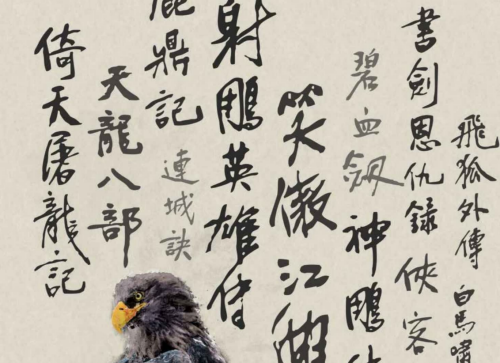 飛狐外傳
白馬嘯
書劍恩仇錄
俠客
碧血劔
神鵰
笑傲江
射鵰英雄傳
鼎記
連城訣
天龍八部
倚天屠龍記